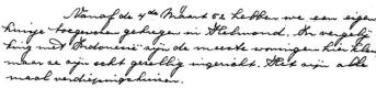 Vanaf de 4de Maart 52 hebben we een eigen
huisje toegewezen gekregen in Helmond. In vergelij-
king met Indonesië zijn de meeste woningen hier klein
maar ze zijn echt gezellig ingericht. Het zijn alle-
maal verdiepingshuizen.